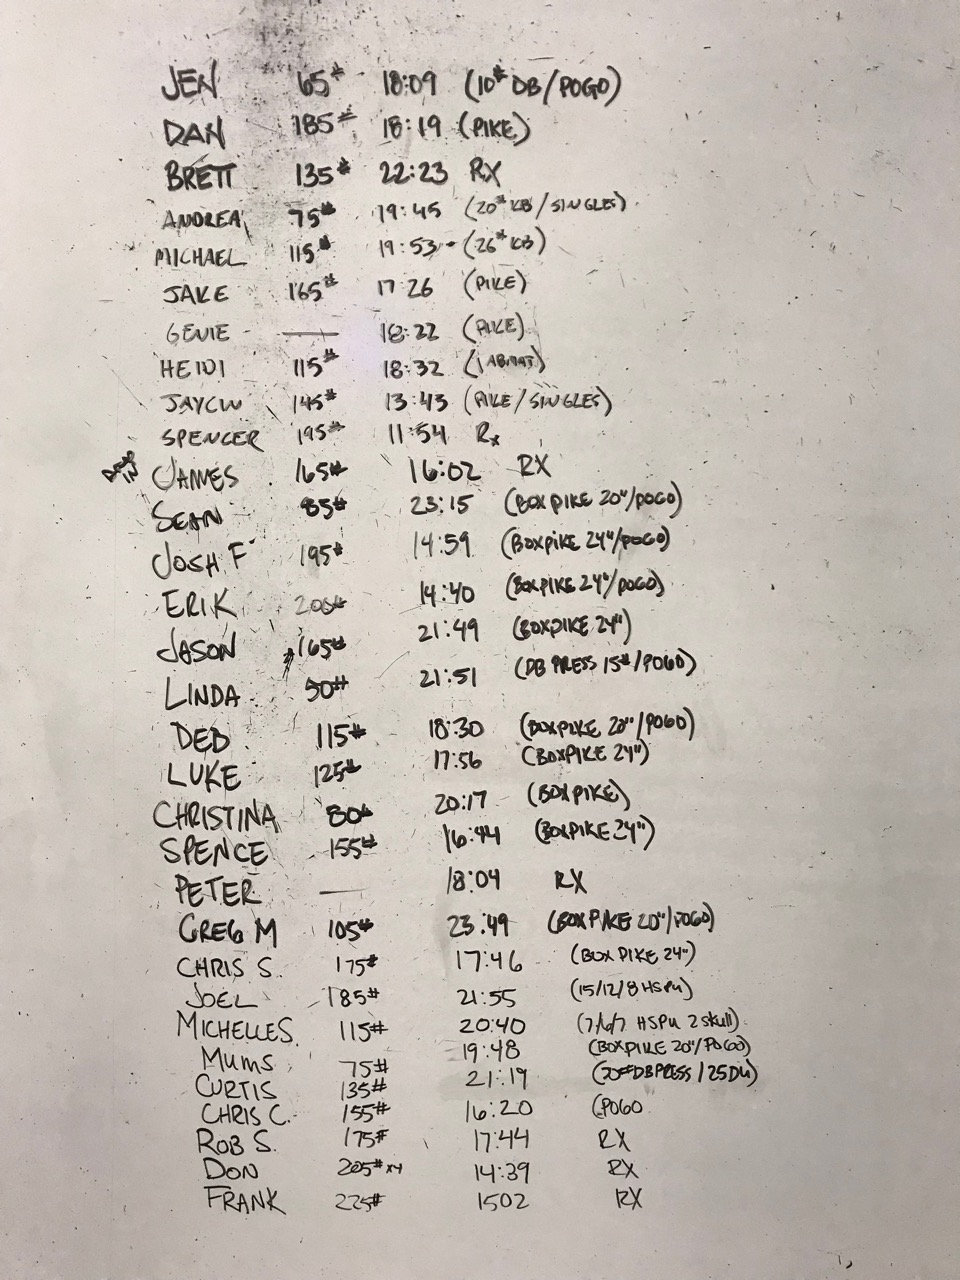 JEN 65# 18:09 (10# DB/POGO)
DAN 185# 18:19 (PIKE)
BRETT 135# 22:23 RX
ANDREA 75# 19:45 (20# KB/SINGLES)
MICHAEL 115# 19:53 (26# KB)
JAKE 165# 17 26 (PIKE)
GENIE — 18:22 (PIKE)
HEIDI 115# 18:32 (1 ABMAT)
JAYCW 145# 13:43 (PIKE/SINGLES)
SPENCER 195# 11:54 Rx
DROP IN JAMES 165# 16:02 RX
SEAN 85# 23:15 (BOXPIKE 20"/POGO)
JOSH F 195# 14:59 (BOXPIKE 24"/POGO)
ERIK 200# 14:40 (BOXPIKE 24"/POGO)
JASON 165# 21:49 (BOXPIKE 24")
LINDA 50# 21:51 (DB PRESS 15#/POGO)
DEB 115# 18:30 (BOXPIKE 20"/POGO)
LUKE 125# 17:56 (BOXPIKE 24")
CHRISTINA 80# 20:17 (BOXPIKE)
SPENCE 155# 16:44 (BOXPIKE 24")
PETER — 18:04 RX
GREG M 105# 23:49 (BOXPIKE 20"/POGO)
CHRIS S. 175# 17:46 (BOX PIKE 24")
JOEL 185# 21:55 (15/12/8 HSPU)
MICHELLES. 115# 20:40 (7/6/7 HSPU 2 skull)
Mums 75# 19:48 (BOXPIKE 20"/POGO)
CURTIS 135# 21:19 (20# DB PRESS/25DU)
CHRIS C. 155# 16:20 (POGO
ROB S. 175# 17:44 RX
DON 205# x4 14:39 RX
FRANK 225# 1502 RX